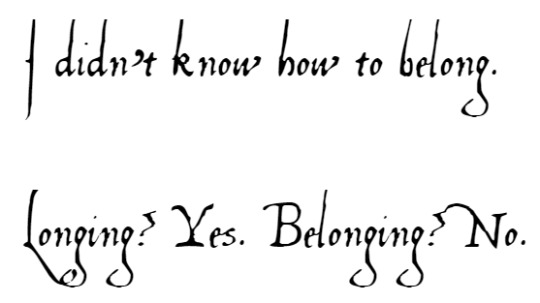 I didn't know how to belong.
Longing? Yes. Belonging? No.